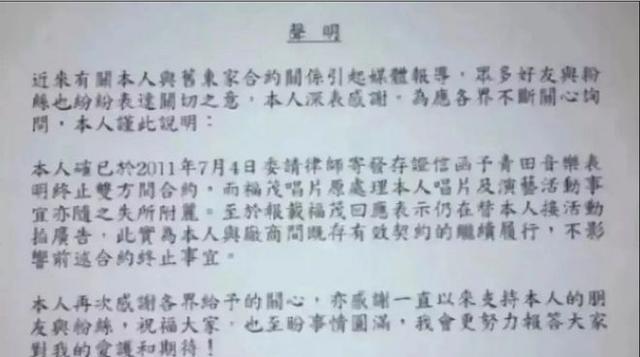 聲明
近來有關本人與舊東家合約關係引起媒體報導，眾多好友與粉
絲也紛紛表達關切之意，本人深表感謝。為應各界不斷關心詢
問，本人謹此說明：
本人確已於2011年7月4日委請律師寄發存證信函予青田音樂表
明終止雙方間合約，而福茂唱片原處理本人唱片及演藝活動事
宜亦隨之失所附麗。至於報載福茂回應表示仍在替本人接活動
拍廣告，此實為本人與廠商間既存有效契約的繼續履行，不影
響前述合約終止事宜。
本人再次感謝各界給予的關心，亦感謝一直以來支持本人的朋
友與粉絲，祝福大家，也至盼事情圓滿，我會更努力報答大家
對我的愛護和期待！